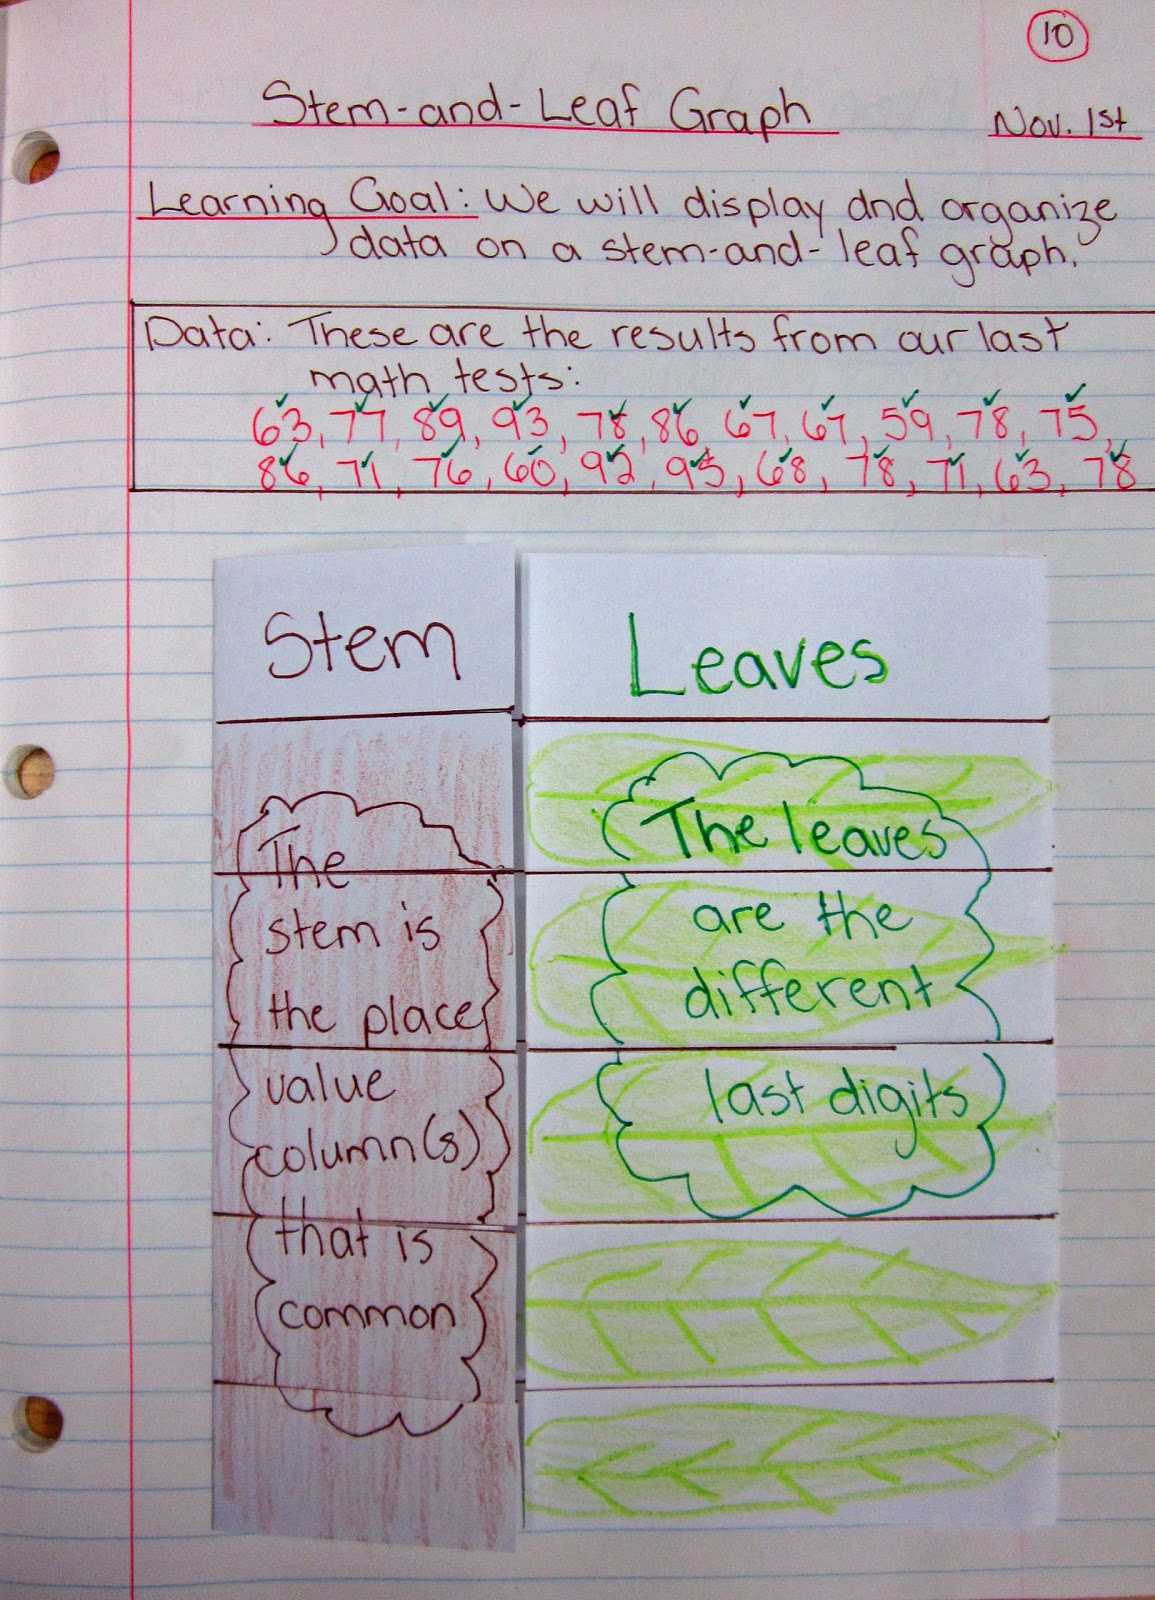 10
Stem-and-Leaf Graph
Nov. 1st
Learning Goal: We will display and organize
data on a stem-and-leaf graph.
Data: These are the results from our last
math tests:
63, 77, 89, 93, 78, 86, 67, 67, 59, 78, 75,
86, 71, 76, 60, 92, 95, 68, 78, 71, 63, 78
Stem
The
stem is
the place
value
column(s)
that is
common
Leaves
The leaves
are the
different
last digits